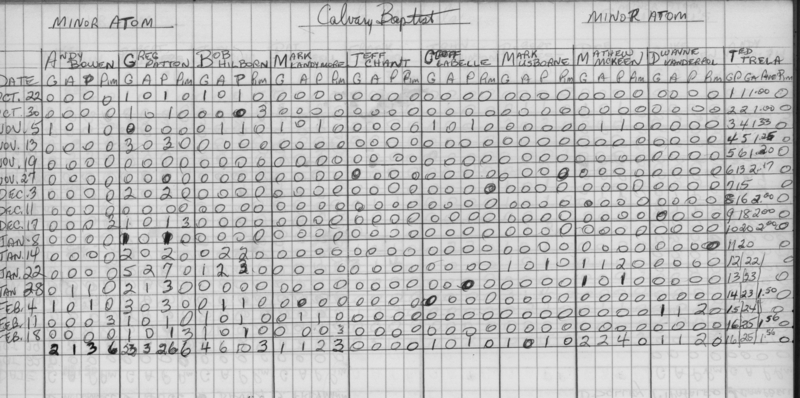 MINOR ATOM Calvary Baptist MINOR ATOM
ANDY BOWEN GREG PATTON BOB HILBORN MARK LANDYMORE JEFF CHANT LABELLE MARK USBORNE MATHEW MCKEEN DWAYNE VANDERPOL TED TRELA
DATE G A P Pim G A P Pim G A P Pim G A P Pim G A P Pim G A P Pim G A P Pim G A P Pim G A P Pim GP GA Ave Pim
OCT. 22 0 0 0 0 1 0 1 0 1 0 1 0 0 0 0 0 0 0 0 0 0 0 0 0 0 0 0 0 0 0 0 0 0 0 0 0 1 1 1.00 0
OCT. 30 0 0 0 0 1 0 1 0 0 0 0 3 0 0 0 0 0 0 0 0 0 0 0 0 0 0 0 0 0 0 0 0 0 0 0 0 2 2 1.00 0
NOV. 5 1 0 1 0 0 0 0 0 0 1 1 0 1 0 1 0 0 0 0 0 1 0 1 0 0 0 0 0 0 1 1 0 0 0 0 0 3 4 1.33 0
NOV. 13 0 0 0 0 3 0 3 0 0 0 0 0 0 0 0 0 0 0 0 0 0 0 0 0 0 0 0 0 0 0 0 0 0 0 0 0 4 5 1.25 0
NOV. 19 0 0 0 0 0 0 0 0 0 0 0 0 0 0 0 0 0 0 0 0 0 0 0 0 0 0 0 0 0 0 0 0 0 0 0 0 5 6 1.20 0
NOV. 27 0 0 0 0 0 0 0 0 0 0 0 0 0 0 0 0 0 0 0 0 0 0 0 0 0 0 0 0 0 0 0 0 0 0 0 0 6 13 2.17 0
DEC. 3 0 0 0 0 2 0 2 0 0 0 0 0 0 0 0 0 0 0 0 0 0 0 0 0 0 0 0 0 0 0 0 0 0 0 0 0 7 15 0
DEC. 11 0 0 0 0 0 0 0 0 0 0 0 0 0 0 0 0 0 0 0 0 0 0 0 0 0 0 0 0 0 0 0 0 0 0 0 0 8 16 2.00 0
DEC. 17 0 0 0 3 1 0 1 3 0 0 0 0 0 0 0 0 0 0 0 0 0 0 0 0 0 0 0 0 0 0 0 0 0 0 0 0 9 18 2.00 0
JAN. 8 0 0 0 0 1 0 1 0 0 0 0 0 0 0 0 0 0 0 0 0 0 0 0 0 0 0 0 0 0 0 0 0 0 0 0 0 10 20 2.00 0
JAN. 14 0 0 0 0 2 0 2 0 0 2 2 0 0 0 0 0 0 0 0 0 0 0 0 0 0 0 0 0 0 0 0 0 0 0 0 0 11 20 0
JAN. 22 0 0 0 0 5 2 7 0 1 2 3 0 0 0 0 0 0 0 0 0 0 0 0 0 1 0 1 0 1 1 2 0 0 0 0 0 12 22 0
JAN 28 0 1 1 0 2 1 3 0 0 0 0 0 0 0 0 0 0 0 0 0 0 0 0 0 0 0 0 0 1 0 1 0 0 0 0 0 13 23 0
FEB. 4 1 0 1 0 3 0 3 0 0 1 1 0 0 0 0 0 0 0 0 0 0 0 0 0 0 0 0 0 0 0 0 0 0 0 0 0 14 23 1.50 0
FEB. 11 0 0 0 3 1 0 1 0 1 0 1 0 0 1 1 0 0 0 0 0 0 0 0 0 0 0 0 0 0 0 0 0 1 1 2 0 15 24 0
FEB. 18 0 0 0 0 1 0 1 3 1 0 1 0 0 0 0 3 0 0 0 0 0 0 0 0 0 0 0 0 0 0 0 0 0 0 0 0 16 25 1.56 0
2 1 3 6 23 3 26 6 4 6 10 3 1 1 2 3 0 0 0 0 1 0 1 0 1 0 1 0 2 2 4 0 1 1 2 0 16 25 1.56 0